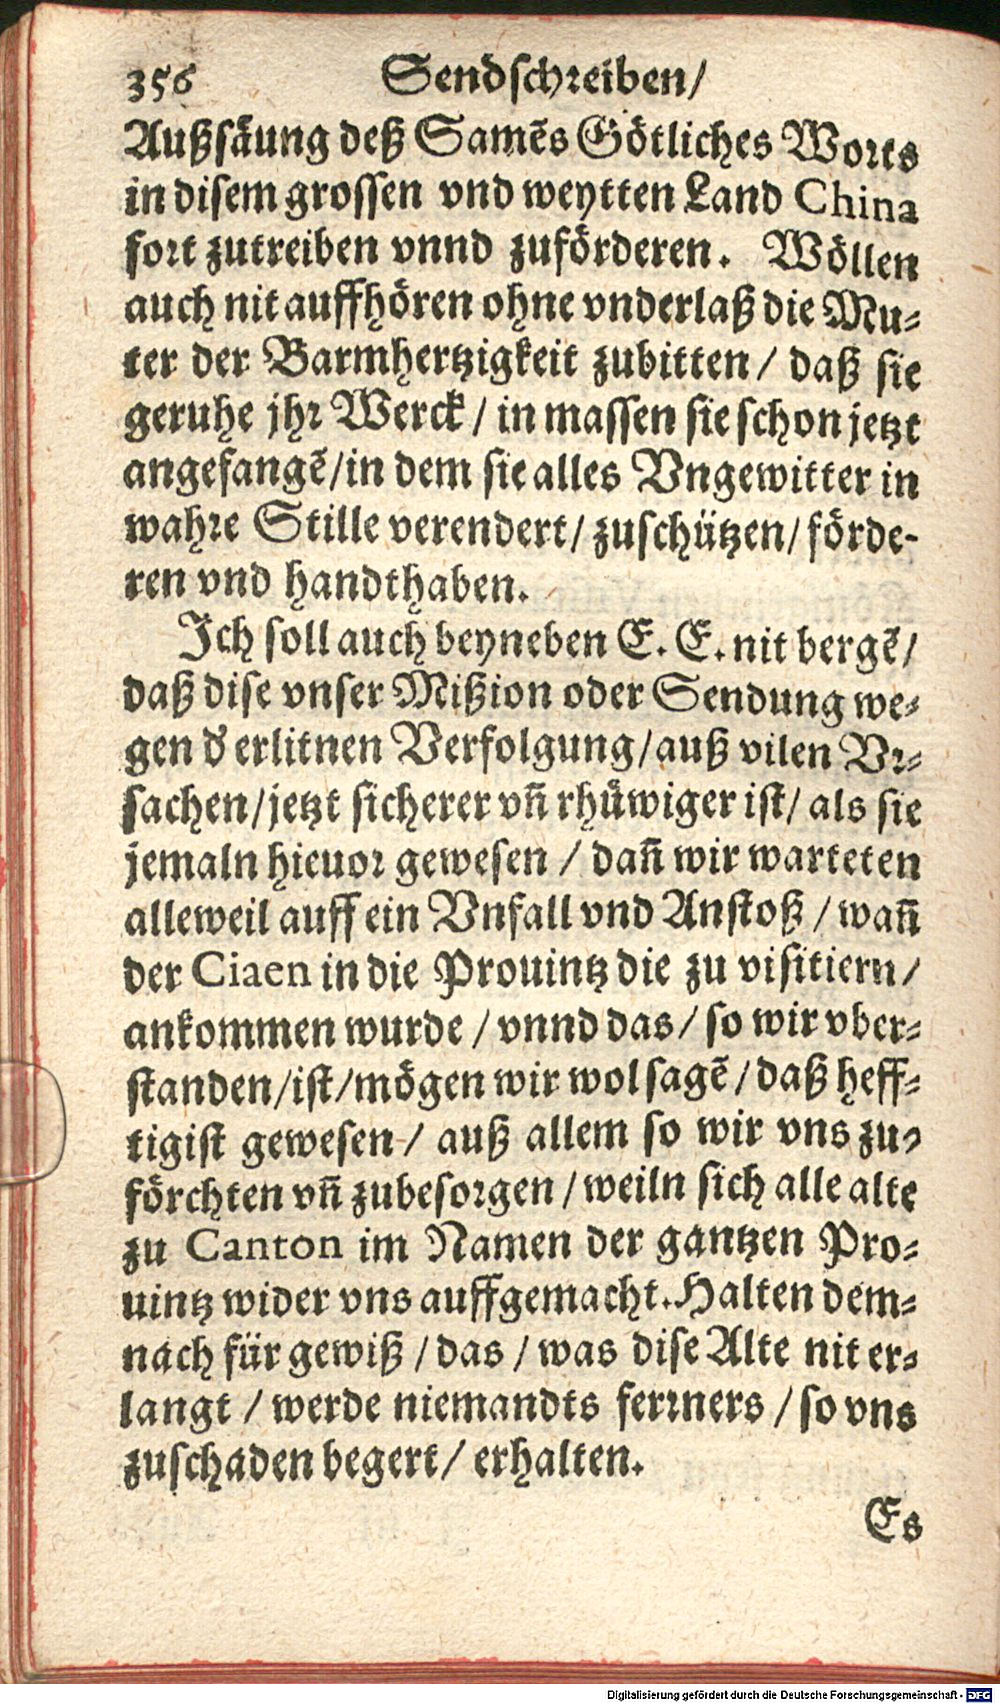 356 Sendschreiben/
Außsäung deß Samẽs Götliches Worts
in disem grossen vnd weytten Land China
fort zutreiben vnnd zuförderen. Wöllen
auch nit auffhören ohne vnderlaß die Mu-
ter der Barmhertzigkeit zubitten / daß sie
geruhe jhr Werck / in massen sie schon jetzt
angefangẽ/in dem sie alles Vngewitter in
wahre Stille verendert/ zuschützen/ förde-
ren vnd handthaben.
Ich soll auch beyneben E. E. nit bergẽ/
daß dise vnser Mißion oder Sendung we-
gen d' erlitnen Verfolgung/auß vilen Vr-
sachen/jetzt sicherer vñ rhüwiger ist/ als sie
jemaln hieuor gewesen / dañ wir warteten
alleweil auff ein Vnfall vnd Anstoß / wañ
der Ciaen in die Prouintz die zu visitiern/
ankommen wurde / vnnd das/ so wir vber-
standen/ist/mögen wir wol sagẽ / daß heff-
tigist gewesen / auß allem so wir vns zu-
förchten vñ zubesorgen / weiln sich alle alte
zu Canton im Namen der gantzen Pro-
uintz wider vns auffgemacht. Halten dem-
nach für gewiß / das / was dise Alte nit er-
langt / werde niemandts ferrners / so vns
zuschaden begert/ erhalten.
Es
Digitalisierung gefördert durch die Deutsche Forschungsgemeinschaft - DFG